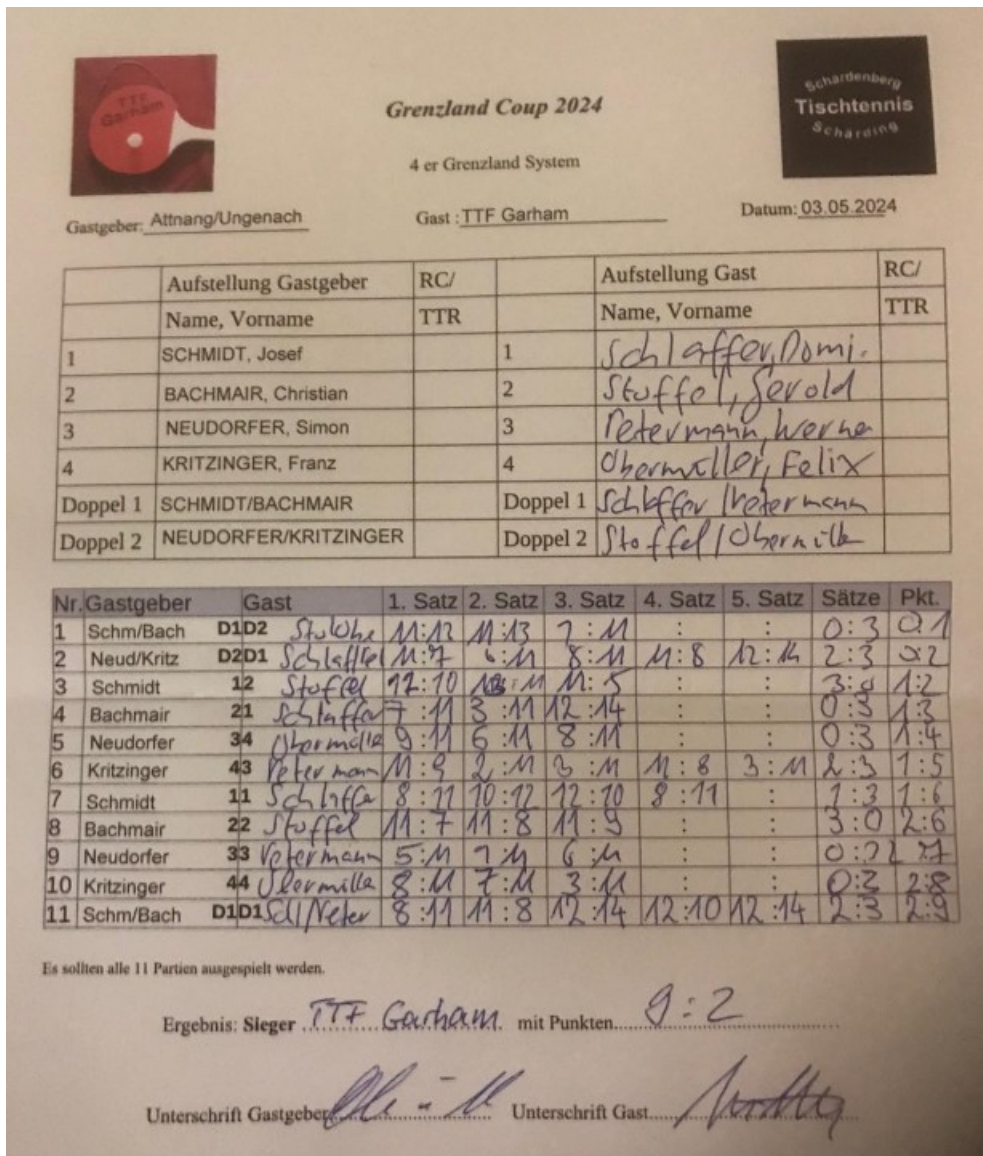 TTF
Garham
Grenzland Coup 2024
Schardenberg
Tischtennis
Schärding
4 er Grenzland System
Gastgeber: Attnang/Ungenach Gast : TTF Garham Datum: 03.05.2024
Aufstellung Gastgeber RC/ Aufstellung Gast RC/
Name, Vorname TTR Name, Vorname TTR
1 SCHMIDT, Josef 1 Schlaffer, Domi.
2 BACHMAIR, Christian 2 Stoffel, Gerold
3 NEUDORFER, Simon 3 Petermann, Werne
4 KRITZINGER, Franz 4 Obermüller, Felix
Doppel 1 SCHMIDT/BACHMAIR Doppel 1 Schlaffer/Petermann
Doppel 2 NEUDORFER/KRITZINGER Doppel 2 Stoffel/Obermülle
Nr. Gastgeber Gast 1. Satz 2. Satz 3. Satz 4. Satz 5. Satz Sätze Pkt.
1 Schm/Bach D1D2 11:13 7:11 : : 0:3 0:1
2 Neud/Kritz D2D1 11:7 6:11 8:11 11:8 12:14 2:3 0:2
3 Schmidt 12 Stoffel 12:10 11:5 : : 3:0 1:2
4 Bachmair 21 Schlaffer 7:11 3:11 12:14 : : 0:3 1:3
5 Neudorfer 34 Obermülle 9:11 6:11 8:11 : : 0:3 1:4
6 Kritzinger 43 Petermann 11:9 2:11 3:11 11:8 3:11 2:3 1:5
7 Schmidt 11 Schlaffe 8:11 10:12 12:10 8:11 : 1:3 1:6
8 Bachmair 22 Stoffel 11:7 11:8 11:9 : : 3:0 2:6
9 Neudorfer 33 Petermann 5:11 6:11 : :
10 Kritzinger 44 Obermülle 8:11 7:11 3:11 : : 0:3 2:8
11 Schm/Bach D1D1 Schl/Peter 8:11 11:8 12:14 12:10 12:14 2:3 2:9
Es sollten alle 11 Partien ausgespielt werden.
Ergebnis: Sieger TTF Garham mit Punkten 9:2
Unterschrift Gastgeber Unterschrift Gast